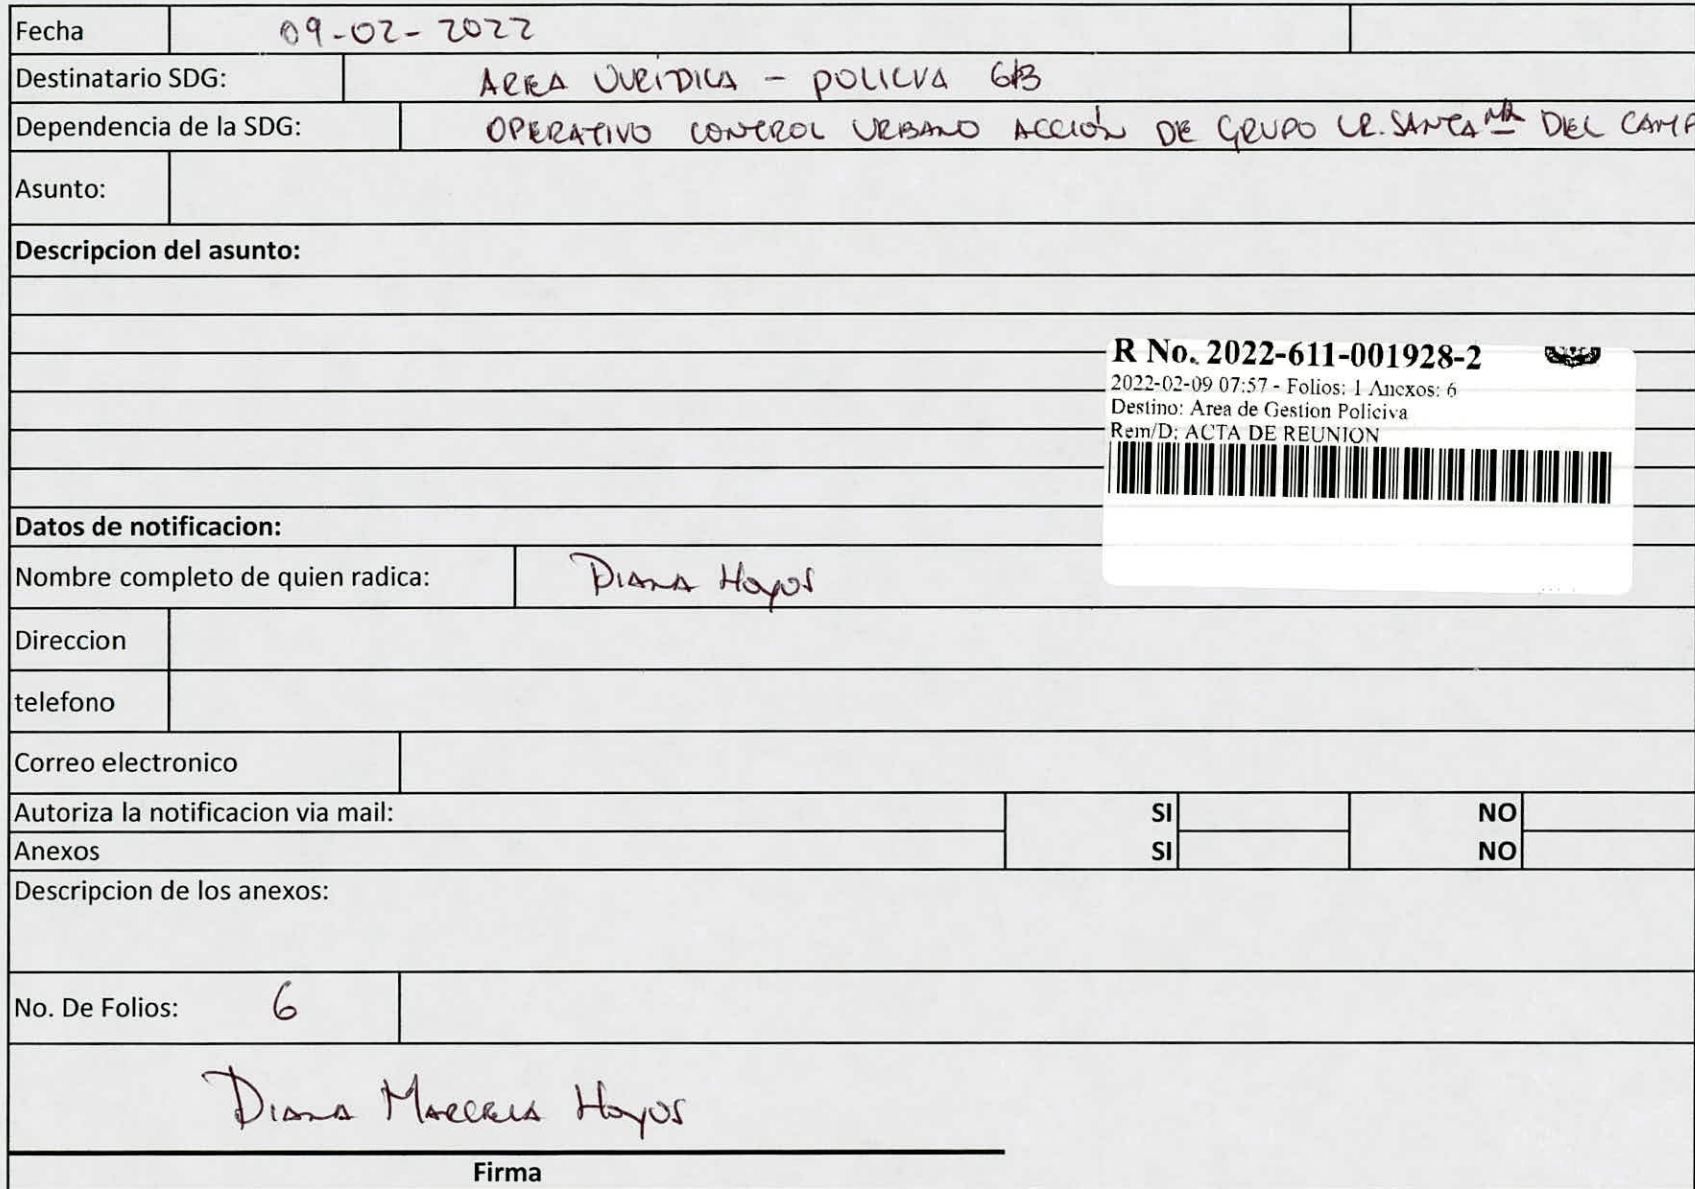 Fecha 09-02-2022
Destinatario SDG: AREA JURÍDICA - POLICIVA
Dependencia de la SDG: OPERATIVO CONTROL URBANO ACCIÓN DE GRUPO UR. SANTA Mª DEL CAMP
Asunto:
Descripcion del asunto:
R No. 2022-611-001928-2
2022-02-09 07:57 - Folios: 1 Anexos: 6
Destino: Area de Gestion Policiva
Rem/D: ACTA DE REUNION
Datos de notificacion:
Nombre completo de quien radica: DIANA Hoyos
Direccion
telefono
Correo electronico
Autoriza la notificacion via mail: SI NO
Anexos SI NO
Descripcion de los anexos:
No. De Folios: 6
DIANA MARCELA Hoyos
Firma